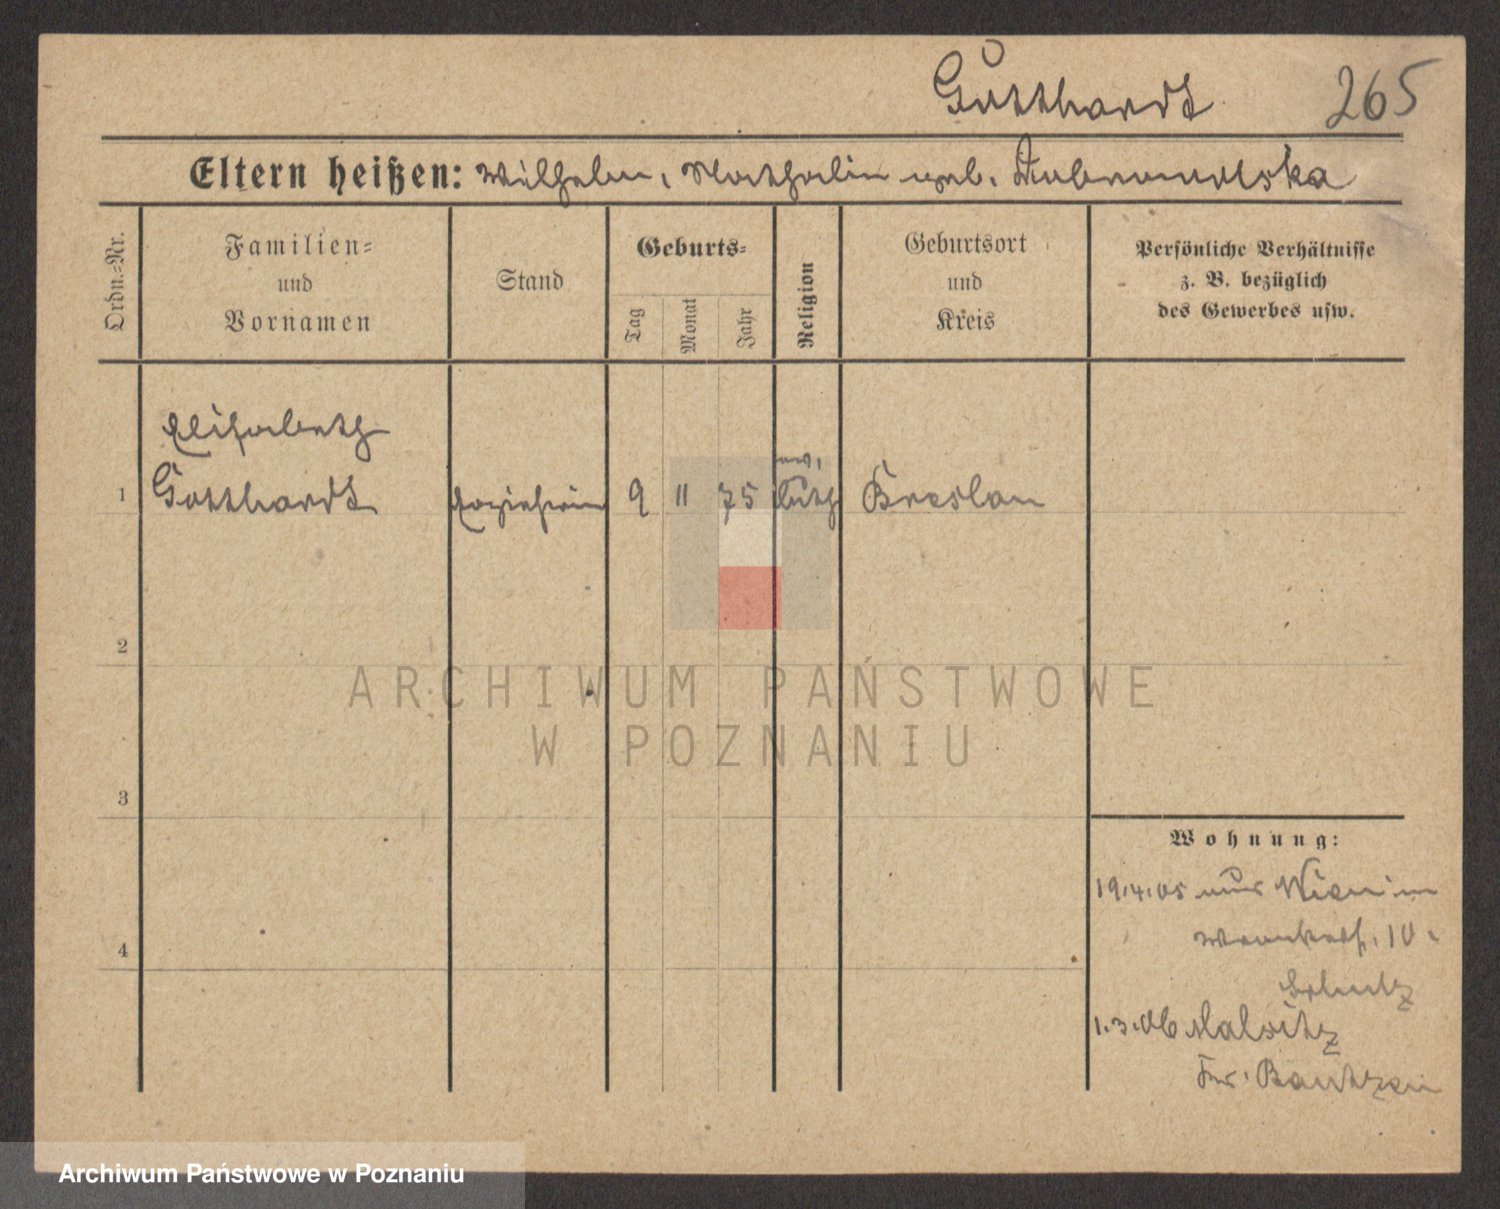 Gotthardt 265
Eltern heißen: Wilhelm, Mathalin geb.
Ordn.=Nr.
Familien=
und
Vornamen
Stand
Geburts=
Tag
Monat
Jahr
Religion
Geburtsort
und
Kreis
Persönliche Verhältnisse
z. B. bezüglich
des Gewerbes usw.
Elisabeth
1 Gotthardt Erzieherin 9 11 75 ev. luth Breslau
2
ARCHIWUM PAŃSTWOWE
W POZNANIU
3
Wohnung:
19.4.05 aus Wien in
10
4
1.3.06 Malsitz
Kr. Bautzen
Archiwum Państwowe w Poznaniu